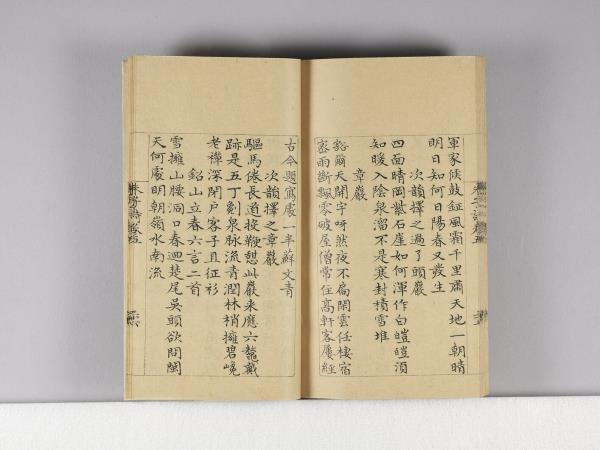 軍家候鼓鉦風霜千里肅天地一朝晴
明日知何日陽春又發生
次韻擇之過了頭巖
四面晴岡紫石崖如何渾作白皚皚湏
知暖入陰泉溜不是寒封積雪堆
章巖
豁爾天開宇呀然夜不扃閑雲任棲宿
密雨斷飄零破屋僧常住高軒客屢經
古今題寫處一半蘇文青
次韻擇之章巖
驅馬倦長道投鞭憇此巖來應六龍戴
跡是五丁劖泉脉流青潤林梢擁碧巉
老禪深閉户客子且征衫
鉛山立春六言二首
雪擁山腰洞口春迴楚尾吳頭欲問閩
天何處明朝嶺水南流